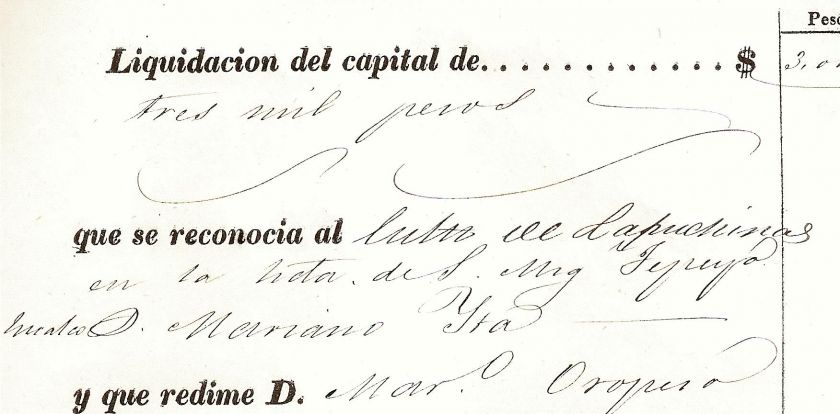 Pes
Liquidacion del capital de. . . . . . . . . . . . . $ 3,0
tres mil pesos
que se reconocia al de Capuchinas
en la de S. Mig
D. Mariano Yta
y que redime D. Mar.o Oropesa